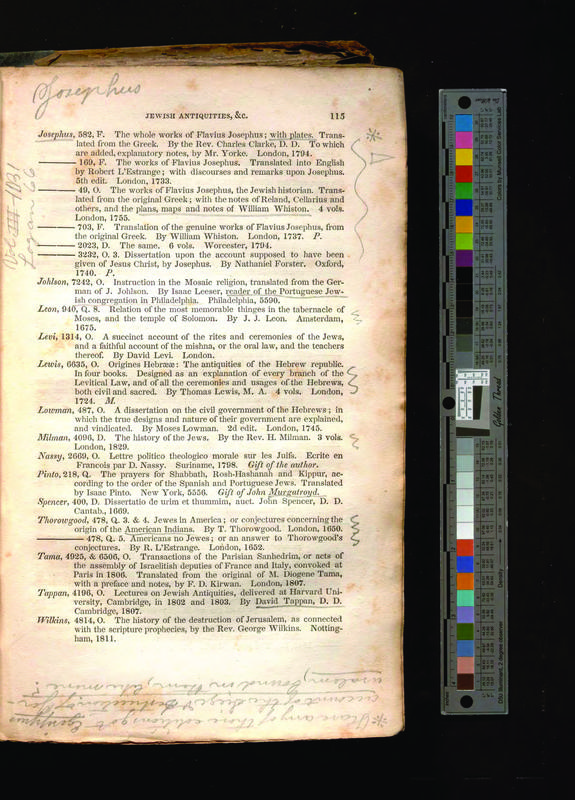 Josephus
JEWISH ANTIQUITIES, &C. 115
Josephus, 582, F. The whole works of Flavius Josephus; with plates. Trans-
lated from the Greek. By the Rev. Charles Clarke, D. D. To which
are added, explanatory notes, by Mr. Yorke. London, 1794.
——— 169, F. The works of Flavius Josephus. Translated into English
by Robert L'Estrange; with discourses and remarks upon Josephus.
5th edit. London, 1733.
——— 49, O. The works of Flavius Josephus, the Jewish historian. Trans-
lated from the original Greek; with the notes of Reland, Cellarius and
others, and the plans, maps and notes of William Whiston. 4 vols.
London, 1755.
——— 703, F. Translation of the genuine works of Flavius Josephus, from
the original Greek. By William Whiston. London, 1737. P.
——— 2023, D. The same. 6 vols. Worcester, 1794.
——— 3232, O. 3. Dissertation upon the account supposed to have been
given of Jesus Christ, by Josephus. By Nathaniel Forster. Oxford,
1740. P.
Johlson, 7242, O. Instruction in the Mosaic religion, translated from the Ger-
man of J. Johlson. By Isaac Leeser, reader of the Portuguese Jew-
ish congregation in Philadelphia. Philadelphia, 5590.
Leon, 940, Q. 8. Relation of the most memorable thinges in the tabernacle of
Moses, and the temple of Solomon. By J. J. Leon. Amsterdam,
1675.
Levi, 1314, O. A succinct account of the rites and ceremonies of the Jews,
and a faithful account of the mishna, or the oral law, and the teachers
thereof. By David Levi. London.
Lewis, 6635, O. Origines Hebrææ: The antiquities of the Hebrew republic.
In four books. Designed as an explanation of every branch of the
Levitical Law, and of all the ceremonies and usages of the Hebrews,
both civil and sacred. By Thomas Lewis, M. A. 4 vols. London,
1724. M.
Lowman, 487, O. A dissertation on the civil government of the Hebrews; in
which the true designs and nature of their government are explained,
and vindicated. By Moses Lowman. 2d edit. London, 1745.
Milman, 4096, D. The history of the Jews. By the Rev. H. Milman. 3 vols.
London, 1829.
Nassy, 2669, O. Lettre politico theologico morale sur les Juifs. Ecrite en
Francois par D. Nassy. Suriname, 1798. Gift of the author.
Pinto, 218, Q. The prayers for Shabbath, Rosh-Hashanah and Kippur, ac-
cording to the order of the Spanish and Portuguese Jews. Translated
by Isaac Pinto. New York, 5556. Gift of John Murgatroyd.
Spencer, 400, D. Dissertatio de urim et thummim, auct. John Spencer, D. D.
Cantab., 1669.
Thorowgood, 478, Q. 3. & 4. Jewes in America; or conjectures concerning the
origin of the American Indians. By T. Thorowgood. London, 1650.
——— 478, Q. 5. Americans no Jewes; or an answer to Thorowgood's
conjectures. By R. L'Estrange. London, 1652.
Tama, 4925, & 6506, O. Transactions of the Parisian Sanhedrim, or acts of
the assembly of Israelitish deputies of France and Italy, convoked at
Paris in 1806. Translated from the original of M. Diogene Tama,
with a preface and notes, by F. D. Kirwan. London, 1807.
Tappan, 4196, O. Lectures on Jewish Antiquities, delivered at Harvard Uni-
versity, Cambridge, in 1802 and 1803. By David Tappan, D. D.
Cambridge, 1807.
Wilkins, 4814, O. The history of the destruction of Jerusalem, as connected
with the scripture prophecies, by the Rev. George Wilkins. Notting-
ham, 1811.
Logan 66
* Have any of those editions got
account of the siege & destruction of Jer-
usalem, bound in them,